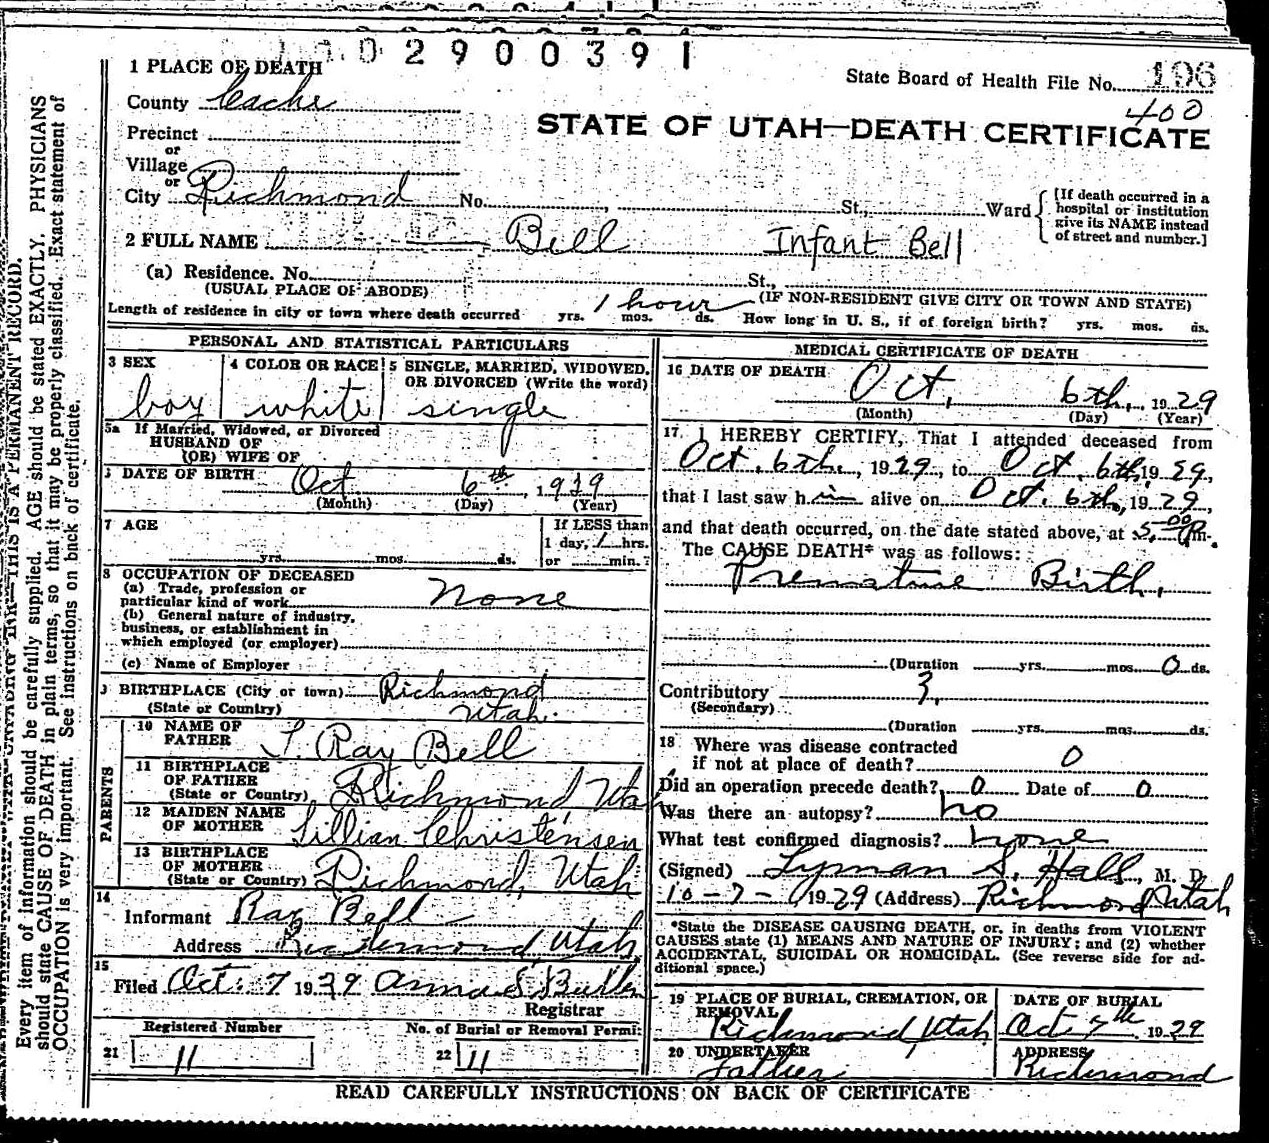 02900391
1 PLACE OF DEATH
State Board of Health File No. 196
County Cache
400
STATE OF UTAH—DEATH CERTIFICATE
Precinct
or
Village
or
City Richmond No. , St., Ward
[If death occurred in a
hospital or institution
give its NAME instead
of street and number.]
2 FULL NAME Bell Infant Bell
(a) Residence. No. St.,
(USUAL PLACE OF ABODE) (IF NON-RESIDENT GIVE CITY OR TOWN AND STATE)
Length of residence in city or town where death occurred yrs. 1 hour mos. ds. How long in U. S., if of foreign birth? yrs. mos. ds.
PERSONAL AND STATISTICAL PARTICULARS
3 SEX boy
4 COLOR OR RACE white
5 SINGLE, MARRIED, WIDOWED,
OR DIVORCED (Write the word)
single
5a If Married, Widowed, or Divorced
HUSBAND OF
(OR) WIFE OF
DATE OF BIRTH Oct 6th, 1929
(Month) (Day) (Year)
7 AGE
yrs. mos. ds.
If LESS than
1 day, 1 hrs.
or min.
8 OCCUPATION OF DECEASED
(a) Trade, profession or
particular kind of work none
(b) General nature of industry,
business, or establishment in
which employed (or employer)
(c) Name of Employer
9 BIRTHPLACE (City or town) Richmond
(State or Country) Utah.
PARENTS
10 NAME OF
FATHER Ray Bell
11 BIRTHPLACE
OF FATHER
(State or Country) Richmond Utah
12 MAIDEN NAME
OF MOTHER Lillian Christensen
13 BIRTHPLACE
OF MOTHER
(State or Country) Richmond, Utah
14
Informant Ray Bell
Address Richmond, Utah.
15
Filed Oct. 7 1929 Anna S. Butler
Registrar
Registered Number
21 11
No. of Burial or Removal Permit
22 11
MEDICAL CERTIFICATE OF DEATH
16 DATE OF DEATH Oct, 6th, 1929
(Month) (Day) (Year)
17. I HEREBY CERTIFY, That I attended deceased from
Oct. 6th, 1929, to Oct, 6th, 1929,
that I last saw him alive on Oct. 6th, 1929,
and that death occurred, on the date stated above, at 5.00 Pm.
The CAUSE DEATH* was as follows:
Premature Birth.
(Duration yrs. mos. 0 ds.
Contributory 3.
(Secondary)
(Duration yrs. mos. ds.
18 Where was disease contracted
if not at place of death? 0
Did an operation precede death? 0 Date of 0
Was there an autopsy? no
What test confirmed diagnosis? none
(Signed) Lyman S. Hall, M. D.
10-7-1929 (Address) Richmond Utah
*State the DISEASE CAUSING DEATH, or, in deaths from VIOLENT
CAUSES state (1) MEANS AND NATURE OF INJURY; and (2) whether
ACCIDENTAL, SUICIDAL OR HOMICIDAL. (See reverse side for ad-
ditional space.)
19 PLACE OF BURIAL, CREMATION, OR
REMOVAL
Richmond, Utah
DATE OF BURIAL
Oct 7th 1929
20 UNDERTAKER
Father
ADDRESS
Richmond
READ CAREFULLY INSTRUCTIONS ON BACK OF CERTIFICATE
THIS IS A PERMANENT RECORD.
Every item of information should be carefully supplied. AGE should be stated EXACTLY. PHYSICIANS
should state CAUSE OF DEATH in plain terms, so that it may be properly classified. Exact statement of
OCCUPATION is very important. See instructions on back of certificate.